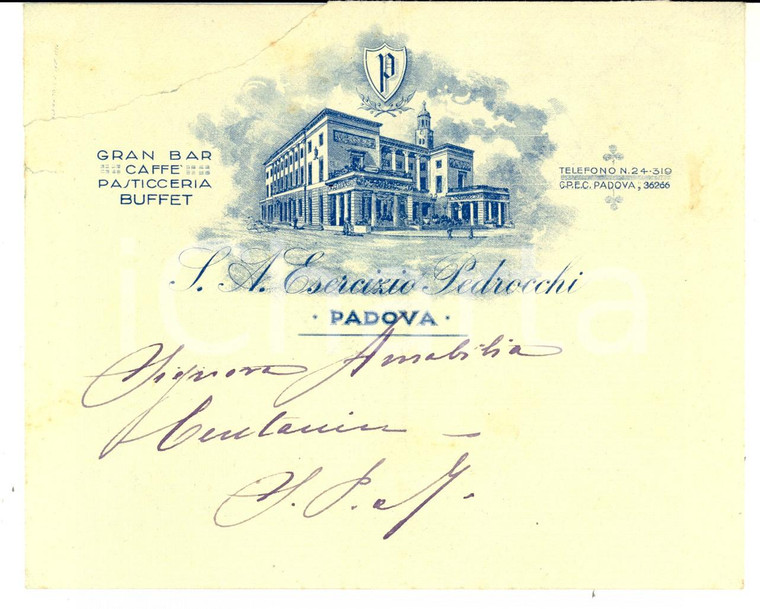 P
GRAN BAR
CAFFE'
PASTICCERIA
BUFFET
TELEFONO N. 24-319
C.P.E.C. PADOVA, 36266
S. A. Esercizio Pedrocchi
· PADOVA ·
Signora Amabilia
Centanin